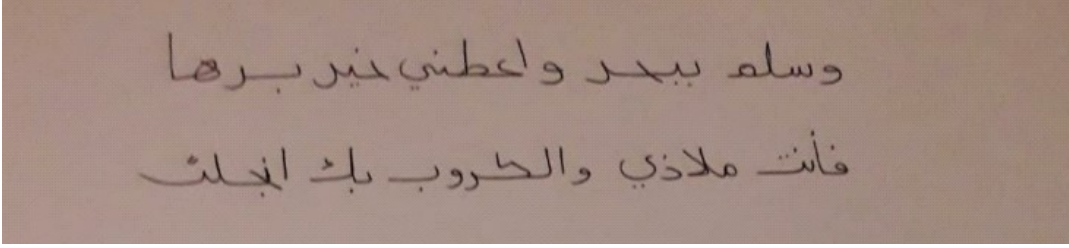 وسلم ببحر واعطني خير برها
فأنت ملاذي والكروب بك انجلت